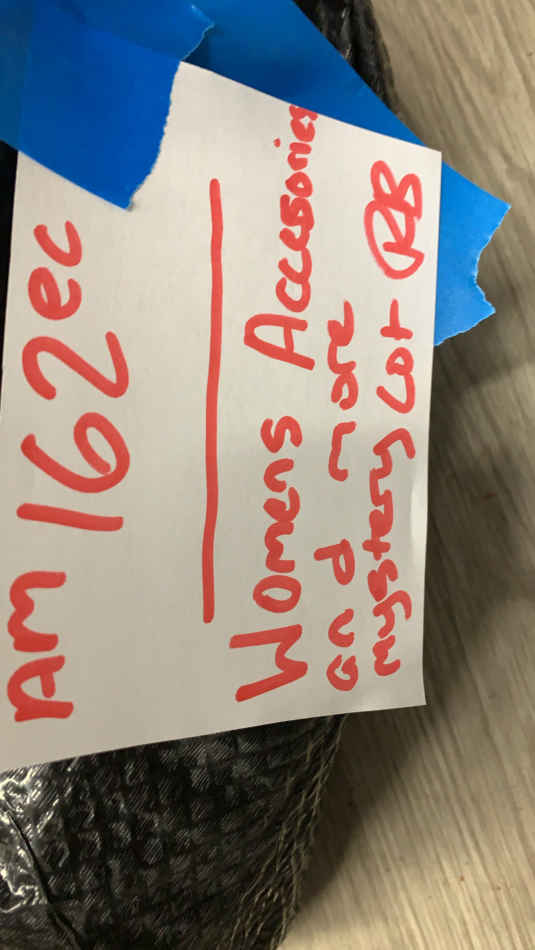 AM 162ec
Womens Accessories
and more
mystery Lot RB